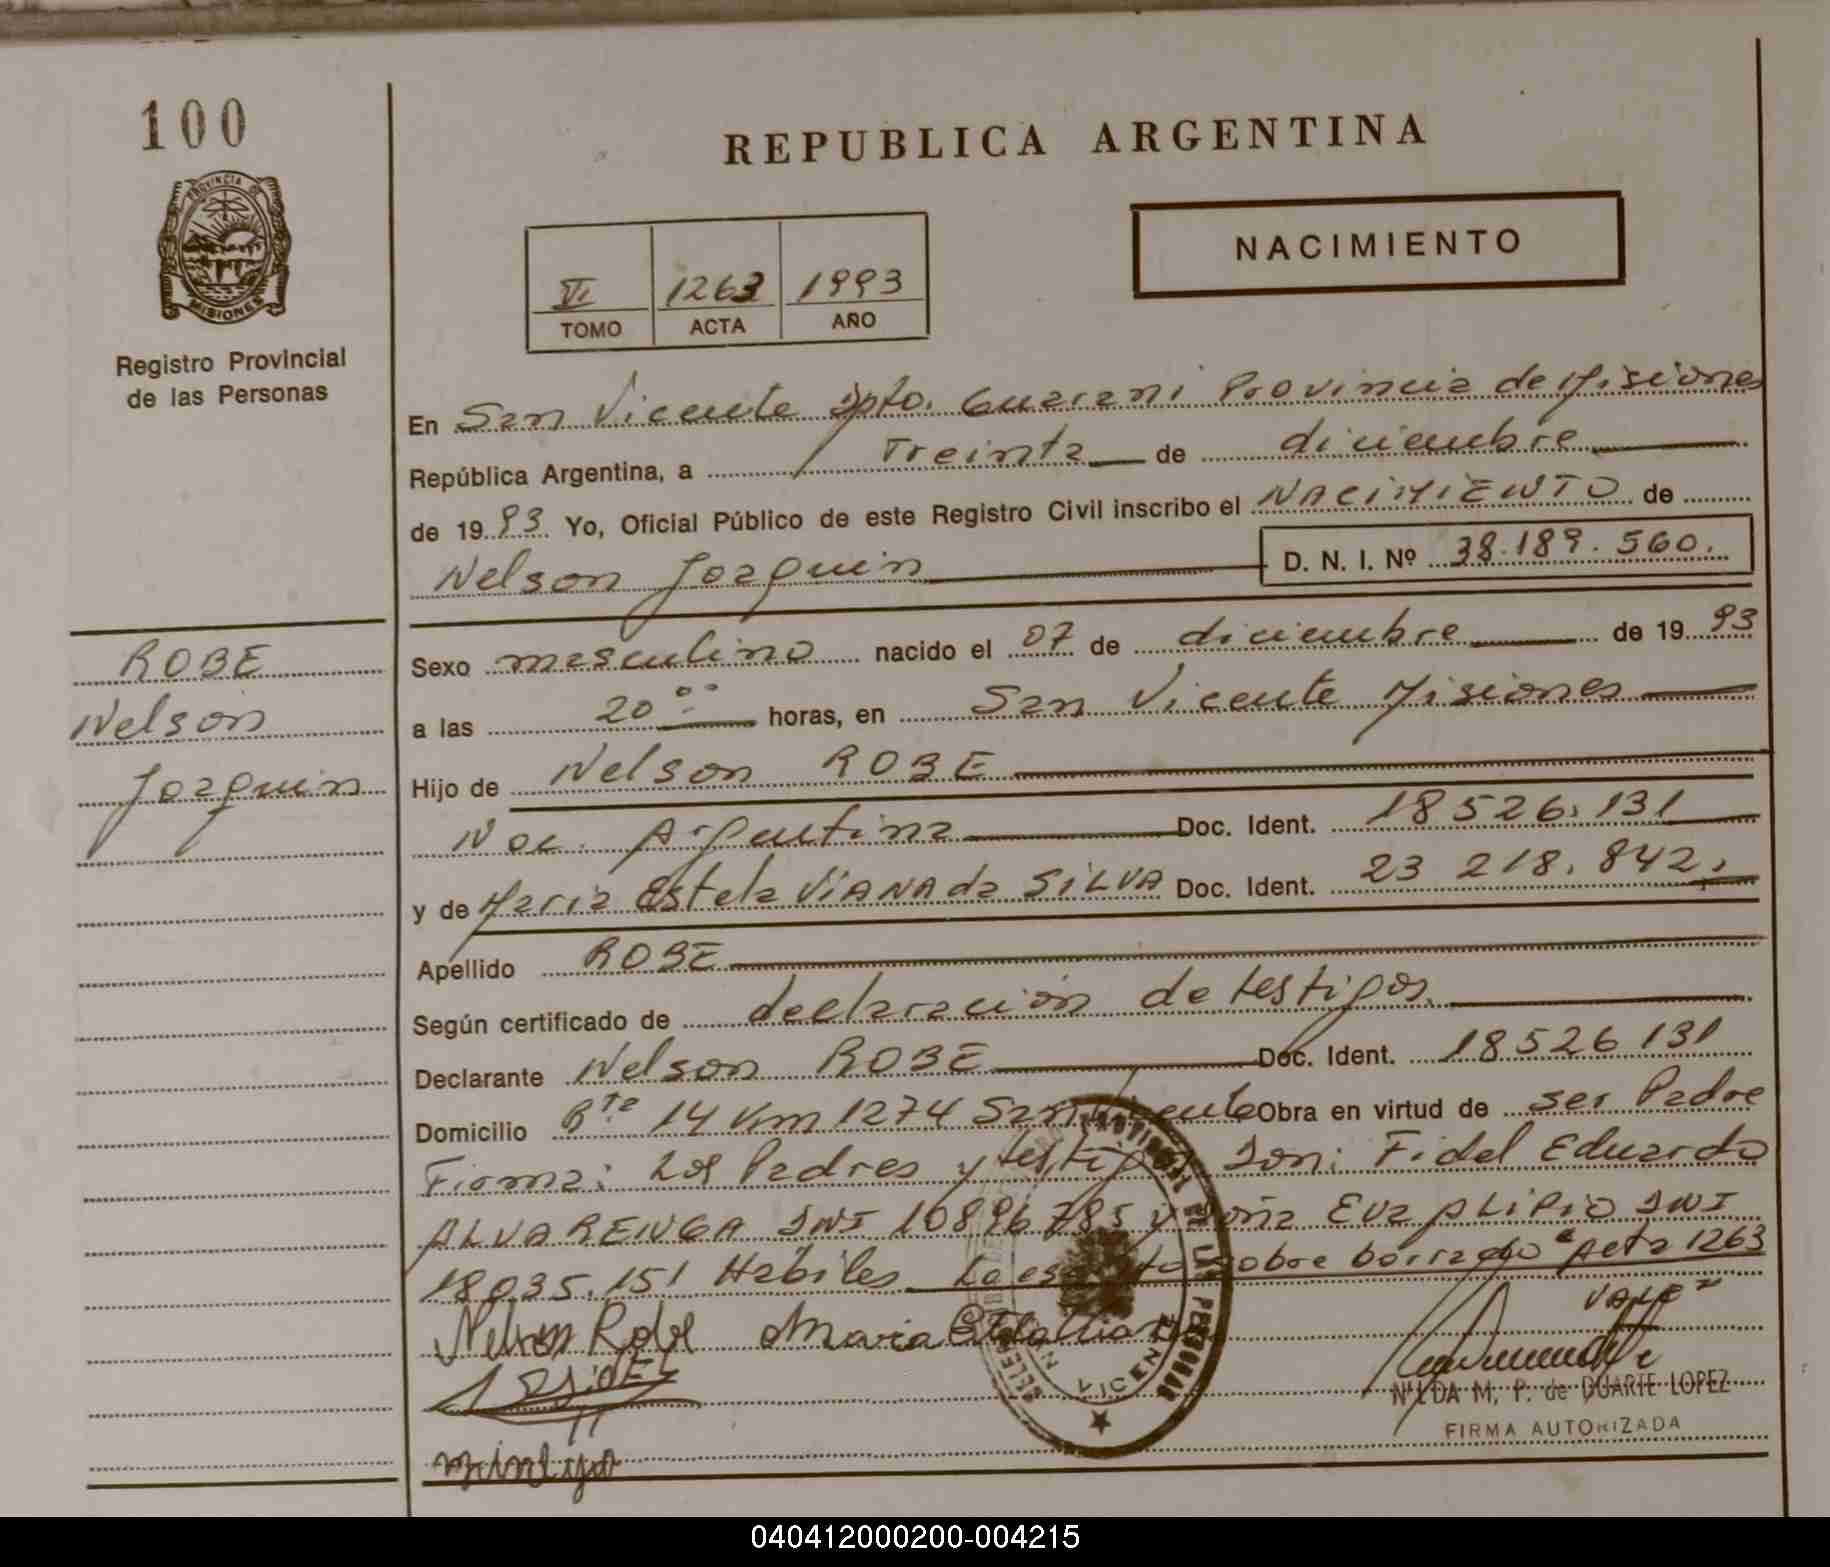 100
PROVINCIA DE
MISIONES
Registro Provincial
de las Personas
REPUBLICA ARGENTINA
NACIMIENTO
VI 1263 1993
TOMO ACTA AÑO
En San Vicente Dpto. Guarani Provincia de Misiones
República Argentina, a Treinta de diciembre
de 1993 Yo, Oficial Público de este Registro Civil inscribo el NACIMIENTO de
Nelson Joaquin D. N. I. Nº 38.189.560.
ROBE
Nelson
Joaquin
Sexo masculino nacido el 07 de diciembre de 1993
a las 20:00 horas, en San Vicente Misiones
Hijo de Nelson ROBE
Nac. Argentina Doc. Ident. 18526.131
y de Maria Estela ViANA da SiLVA Doc. Ident. 23 218.842.
Apellido ROBE
Según certificado de declaración de testigos
Declarante Nelson ROBE Doc. Ident. 18526 131
Domicilio Rta 14 Km 1274 San Vicente Obra en virtud de ser Padre
Firma: Los Padres y testigos Son: Fidel Eduardo
ALVARENGA DNI 10896785 y Doña Eva ALiPiO DNI
18035.151 Habiles Lo escrito sobre borrado "Acta 1263
VALE"
Nelson Robe Maria Estela Viana
VICENTE
DE LAS PERSONAS
NILDA M. P. de DUARTE LOPEZ
FIRMA AUTORIZADA
040412000200-004215